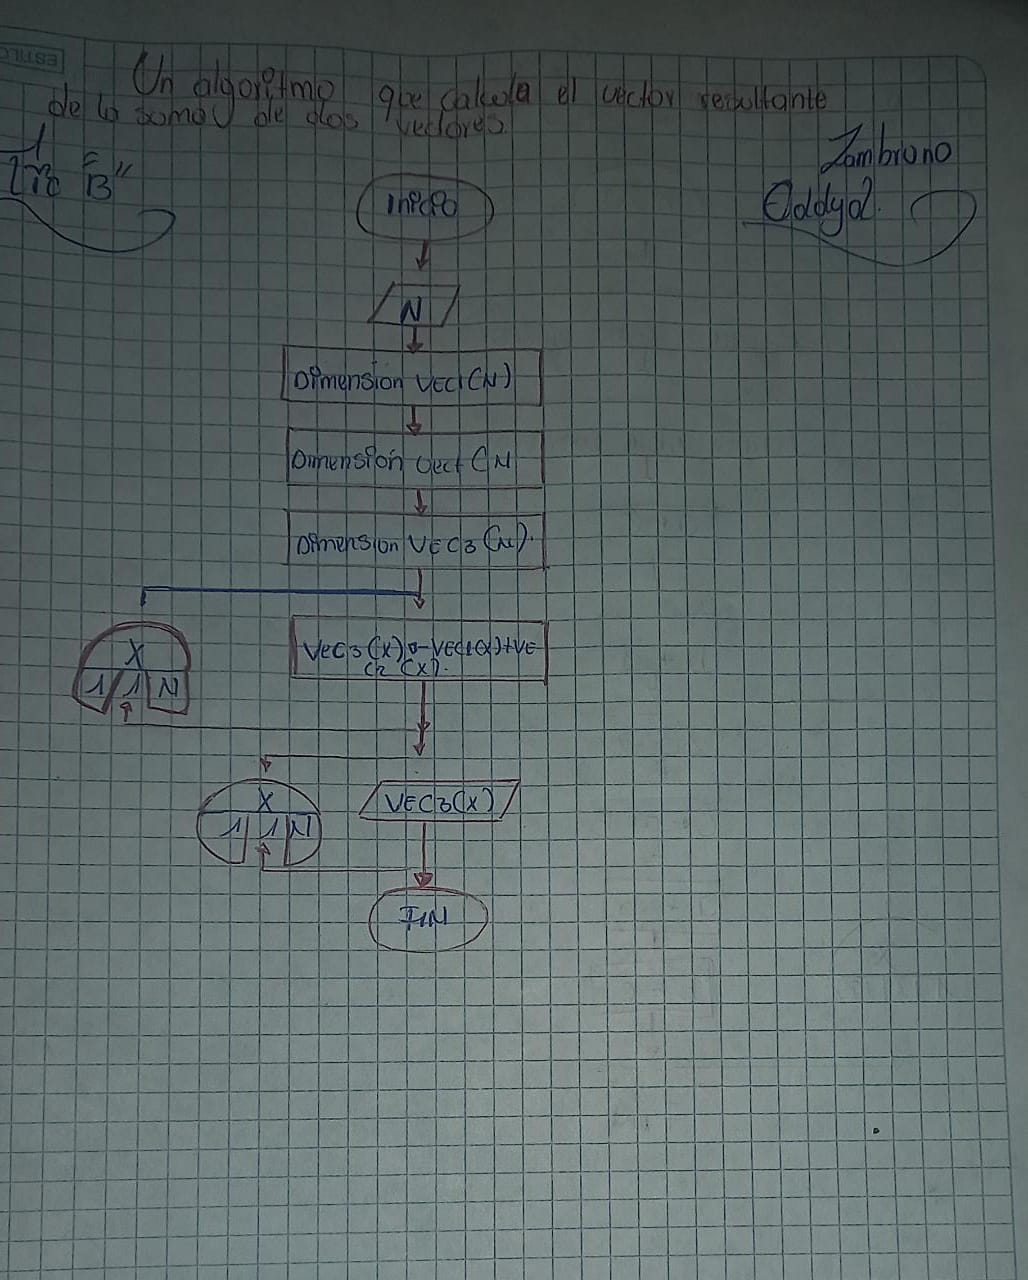 ESTILO
Un algoritmo que calcula el vector resultante
de la suma de dos vectores.
Zambrano
"B"
Inicio
N
Dimension VEC1(N)
Dimension Vect (N
Dimension VEC3 (N).
X
1 1 N
VEC3 (X) VEC1(X)+VE
C2 (X).
X
1 1 N
VEC3(X)
FIN